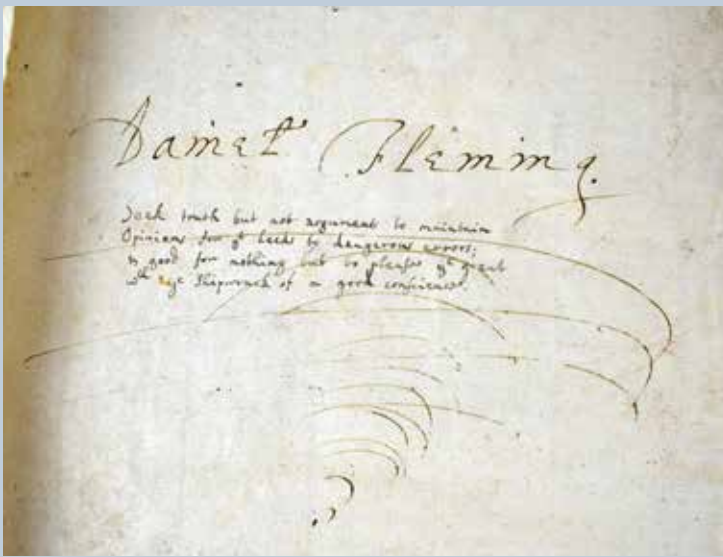 Daniel Fleming.
Seek truth but not argument to maintain
Opinions for yt leads to dangerous errors;
is good for nothing but to please ye
wth ye Shipwrack of a good conscience.